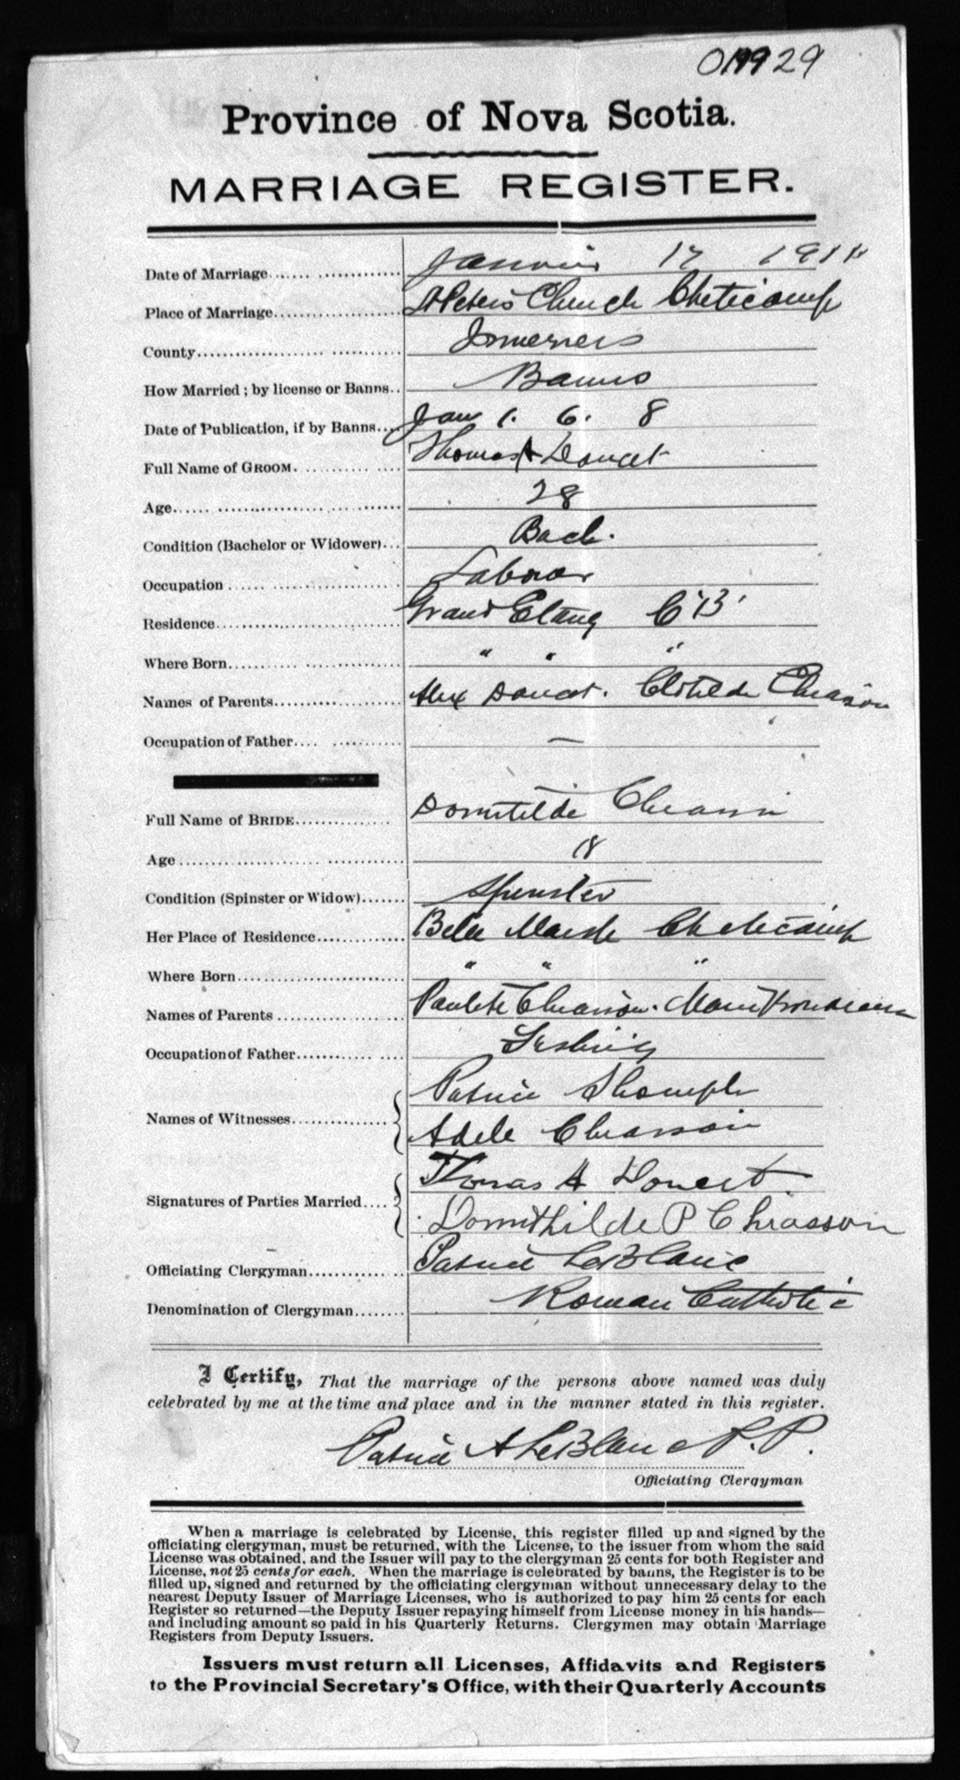 29
Province of Nova Scotia.
MARRIAGE REGISTER.
Date of Marriage 17 1911
Place of Marriage St Peters Church Cheticamp
County
How Married; by license or Banns Banns
Date of Publication, if by Banns Jan 1. 6. 8
Full Name of GROOM Thomas A Doucet
Age 28
Condition (Bachelor or Widower) Bach.
Occupation Laborer
Residence Grand Etang C B
Where Born " " "
Names of Parents Alex Doucet. Clotilde Chiasson
Occupation of Father —
Full Name of BRIDE Domitilde Chiasson
Age 18
Condition (Spinster or Widow) Spinster
Her Place of Residence Belle Marche Cheticamp
Where Born " " "
Names of Parents Chiasson. Marie
Occupation of Father Fishing
Names of Witnesses Patrice
Adele Chiasson
Signatures of Parties Married Thomas A Doucet
Domithilde P Chiasson
Officiating Clergyman Patrice LeBlanc
Denomination of Clergyman Roman Catholic
I Certify, That the marriage of the persons above named was duly
celebrated by me at the time and place and in the manner stated in this register.
Patrice A LeBlanc P.P.
Officiating Clergyman
When a marriage is celebrated by License, this register filled up and signed by the
officiating clergyman, must be returned, with the License, to the issuer from whom the said
License was obtained, and the Issuer will pay to the clergyman 25 cents for both Register and
License, not 25 cents for each. When the marriage is celebrated by banns, the Register is to be
filled up, signed and returned by the officiating clergyman without unnecessary delay to the
nearest Deputy Issuer of Marriage Licenses, who is authorized to pay him 25 cents for each
Register so returned—the Deputy Issuer repaying himself from License money in his hands—
and including amount so paid in his Quarterly Returns. Clergymen may obtain Marriage
Registers from Deputy Issuers.
Issuers must return all Licenses, Affidavits and Registers
to the Provincial Secretary's Office, with their Quarterly Accounts